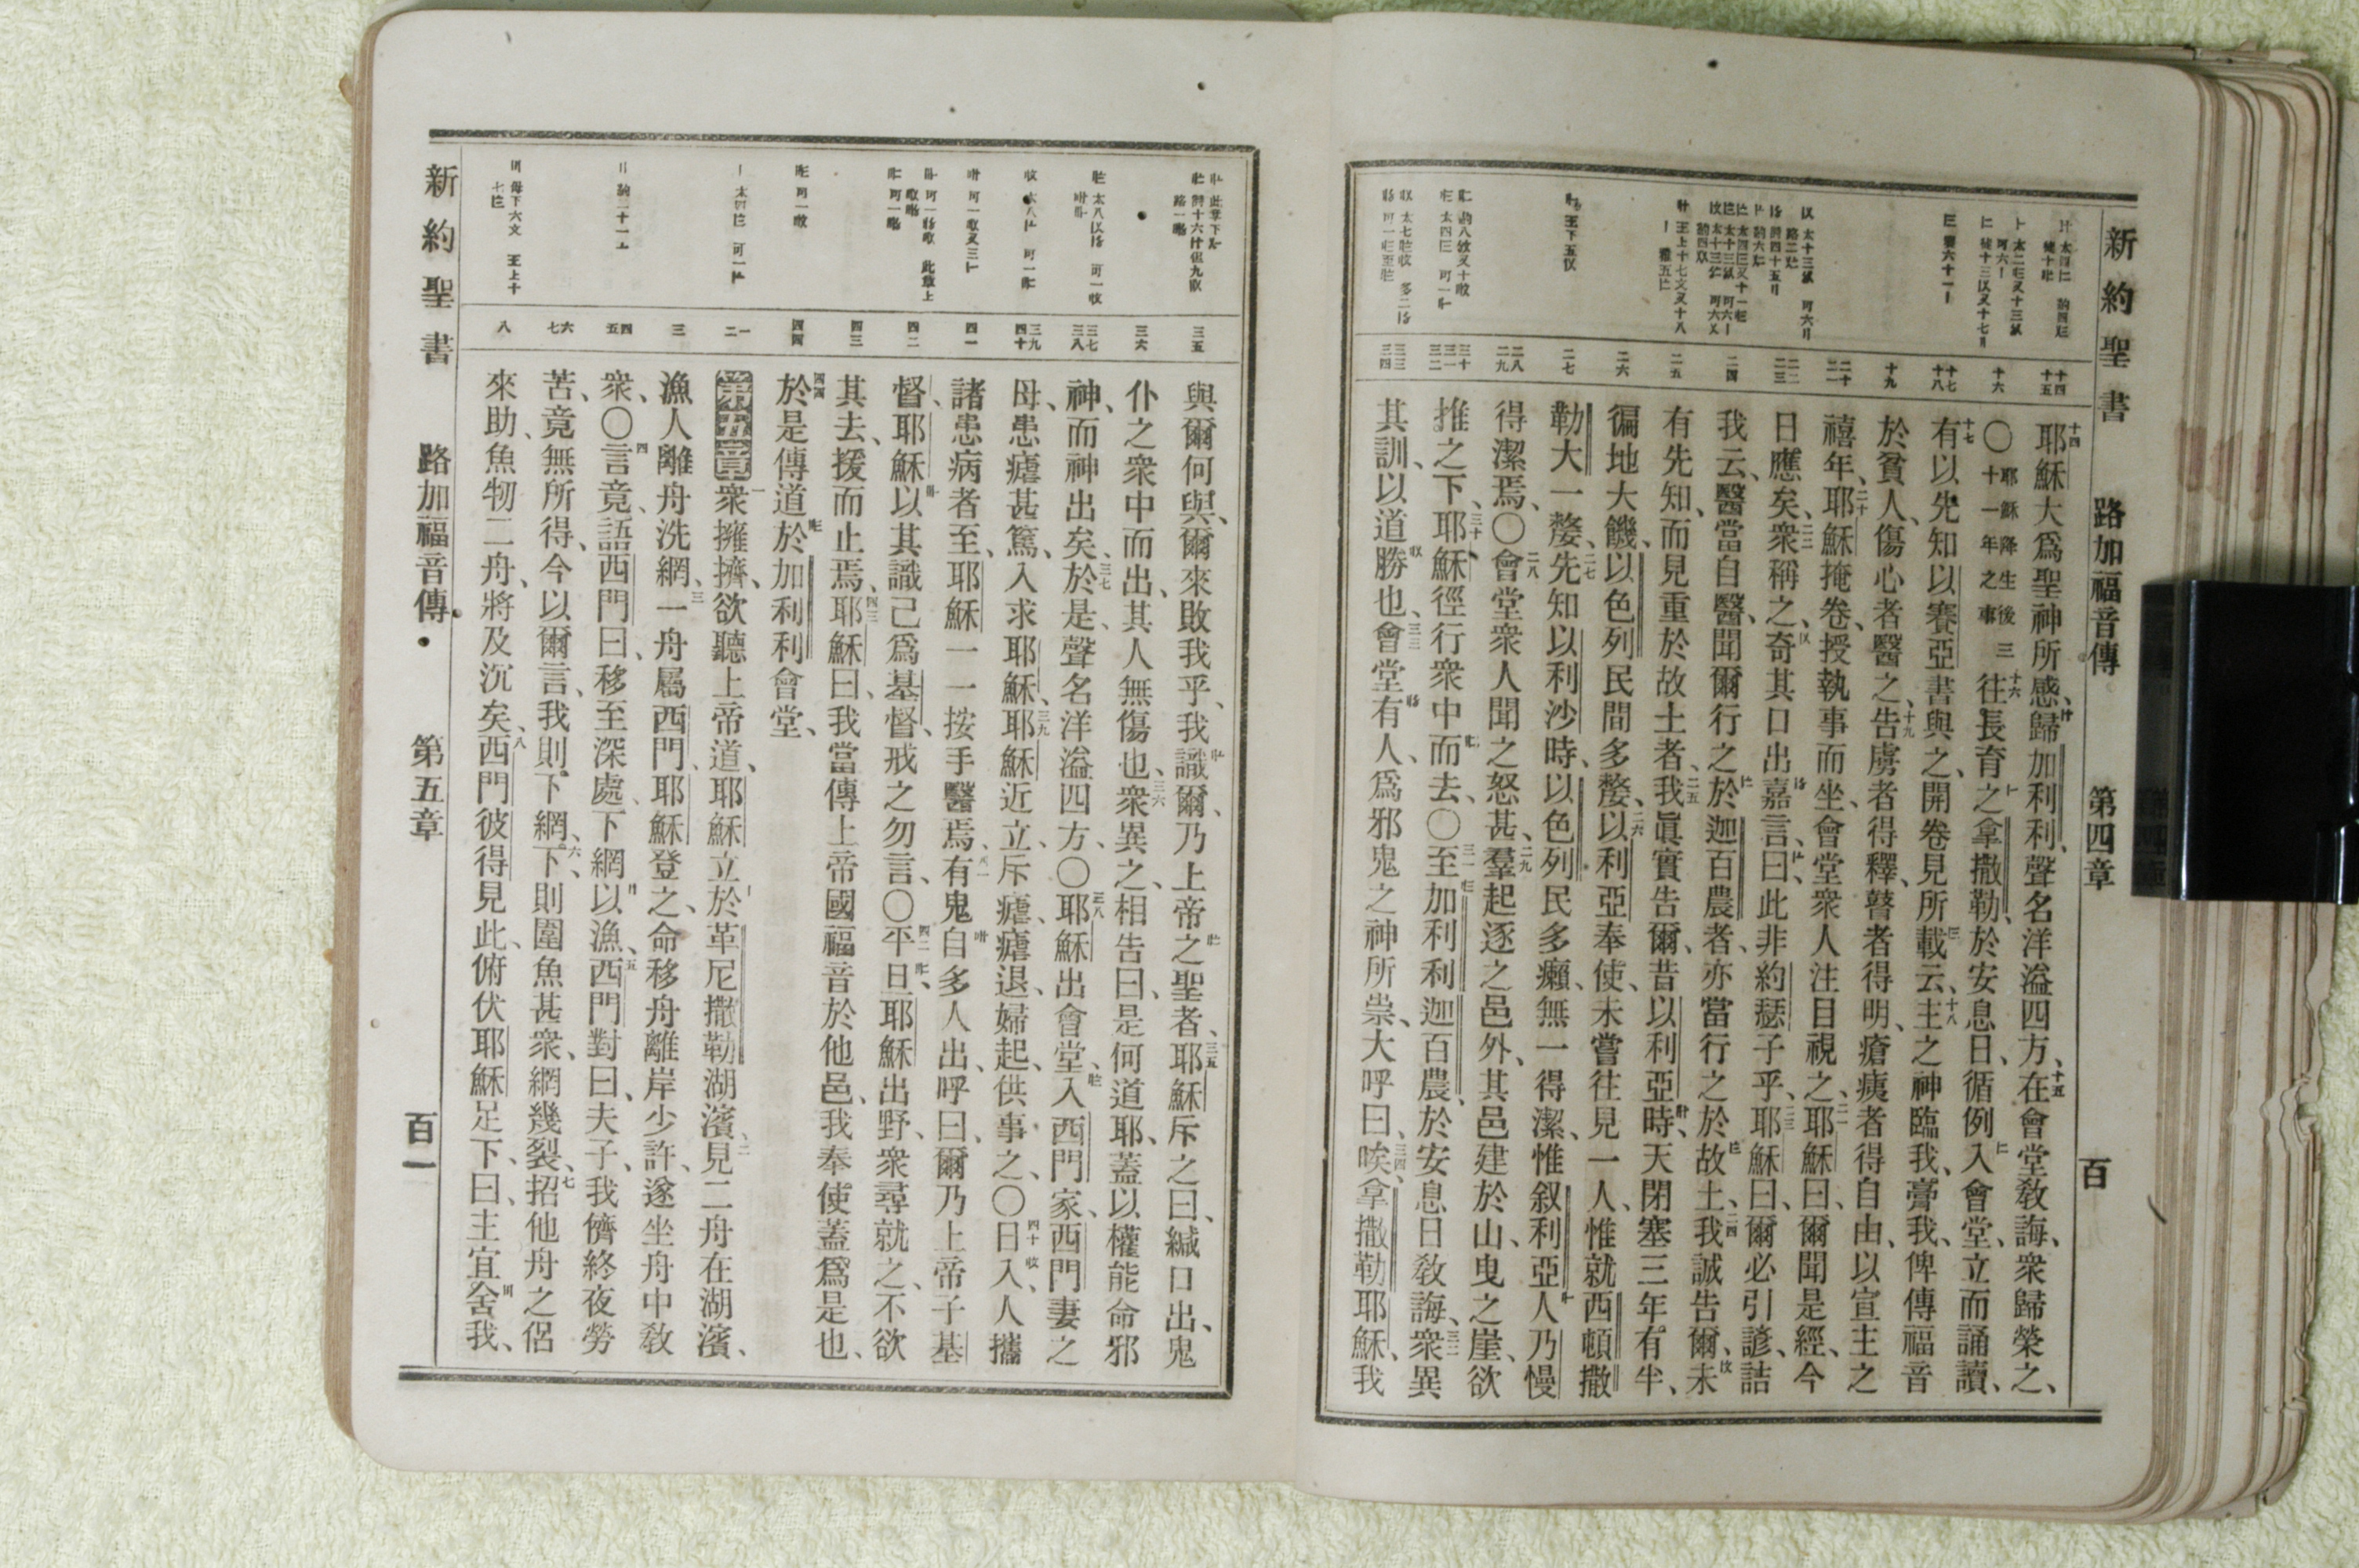 新約聖書 路加福音傳 第四章 百
十四 十五
十六
十七 十八
十九
二十 二一
二二 二三
二四
二五
二六
二七
二八 二九
三十 三一 三二
三三 三四
耶穌大爲聖神所感、歸加利利、聲名洋溢四方、在會堂敎誨、衆歸榮之、
〇耶穌降生後三十一年之事 往長育之拿撒勒、於安息日、循例入會堂、立而誦讀、
有以先知以賽亞書與之、開卷見所載云、主之神臨我、膏我、俾傳福音
於貧人、傷心者醫之、告虜者得釋、瞽者得明、瘡痍者得自由、以宣主之
禧年、耶穌掩卷、授執事而坐、會堂衆人注目視之、耶穌曰、爾聞是經、今
日應矣、衆稱之、奇其口出嘉言、曰、此非約瑟子乎、耶穌曰、爾必引諺、詰
我云、醫當自醫、聞爾行之於迦百農者、亦當行之於故土、我誠告爾、未
有先知、而見重於故土者、我眞實告爾、昔以利亞時、天閉塞三年有半、
徧地大饑、以色列民間多嫠、以利亞奉使、未嘗往見一人、惟就西頓撒
勒大一嫠、先知以利沙時、以色列民多癩、無一得潔、惟叙利亞人乃慢
得潔焉、〇會堂衆人聞之怒甚、羣起逐之邑外、其邑建於山、曳之崖、欲
推之下、耶穌徑行衆中而去、〇至加利利迦百農、於安息日敎誨、衆異
其訓、以道勝也、會堂有人、爲邪鬼之神所祟、大呼曰、唉、拿撒勒耶穌、我
三五
三六
三七 三八
三九 四十
四一
四二
四三
四四
一 二
三
四 五
六 七
八
與爾何與、爾來敗我乎、我識爾、乃上帝之聖者、耶穌斥之曰、緘口出、鬼
仆之衆中而出、其人無傷也、衆異之、相告曰、是何道耶、蓋以權能命邪
神、而神出矣、於是、聲名洋溢四方、〇耶穌出會堂、入西門家、西門妻之
母、患瘧甚篤、入求耶穌、耶穌近立、斥瘧、瘧退、婦起、供事之、〇日入、人攜
諸患病者至、耶穌一一按手醫焉、有鬼自多人出、呼曰、爾乃上帝子基
督、耶穌以其識己爲基督、戒之勿言、〇平旦、耶穌出野、衆尋就之、不欲
其去、援而止焉、耶穌曰、我當傳上帝國福音於他邑、我奉使蓋爲是也、
於是傳道於加利利會堂、
第五章 衆擁擠、欲聽上帝道、耶穌立於革尼撒勒湖濱、見二舟在湖濱、
漁人離舟洗網、一舟屬西門、耶穌登之、命移舟離岸少許、遂坐舟中敎
衆、〇言竟、語西門曰、移至深處、下網以漁、西門對曰、夫子、我儕終夜勞
苦、竟無所得、今以爾言、我則下網、下、則圍魚甚衆、網幾裂、招他舟之侶
來助、魚牣二舟、將及沉矣、西門彼得見此、俯伏耶穌足下、曰、主宜舍我、
新約聖書 路加福音傳 第五章 百一